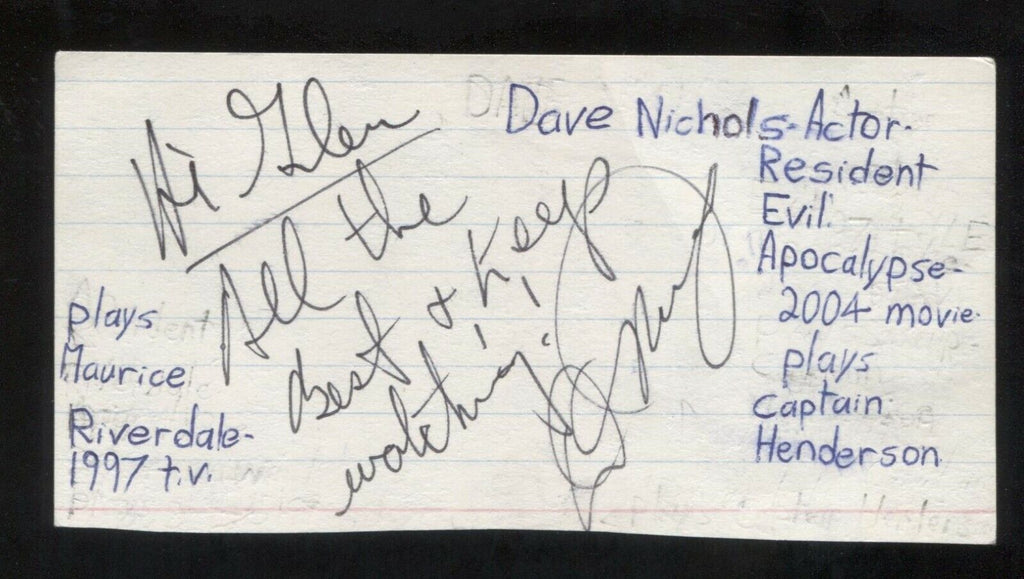 Hi Glen
All the
best & keep
watching!
Dave Nichols-Actor-
Resident
Evil:
Apocalypse-
2004 movie
plays
Captain
Henderson
plays
Maurice
Riverdale-
1997 t.v.